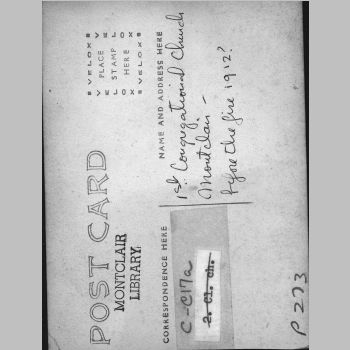 VELOX
PLACE
STAMP
HERE
VELOX
POST CARD
MONTCLAIR
LIBRARY.
CORRESPONDENCE HERE
NAME AND ADDRESS HERE
1st Congregational Church
Montclair -
before the fire 1912?
C-C17a
2. Cl. ch.
P 273